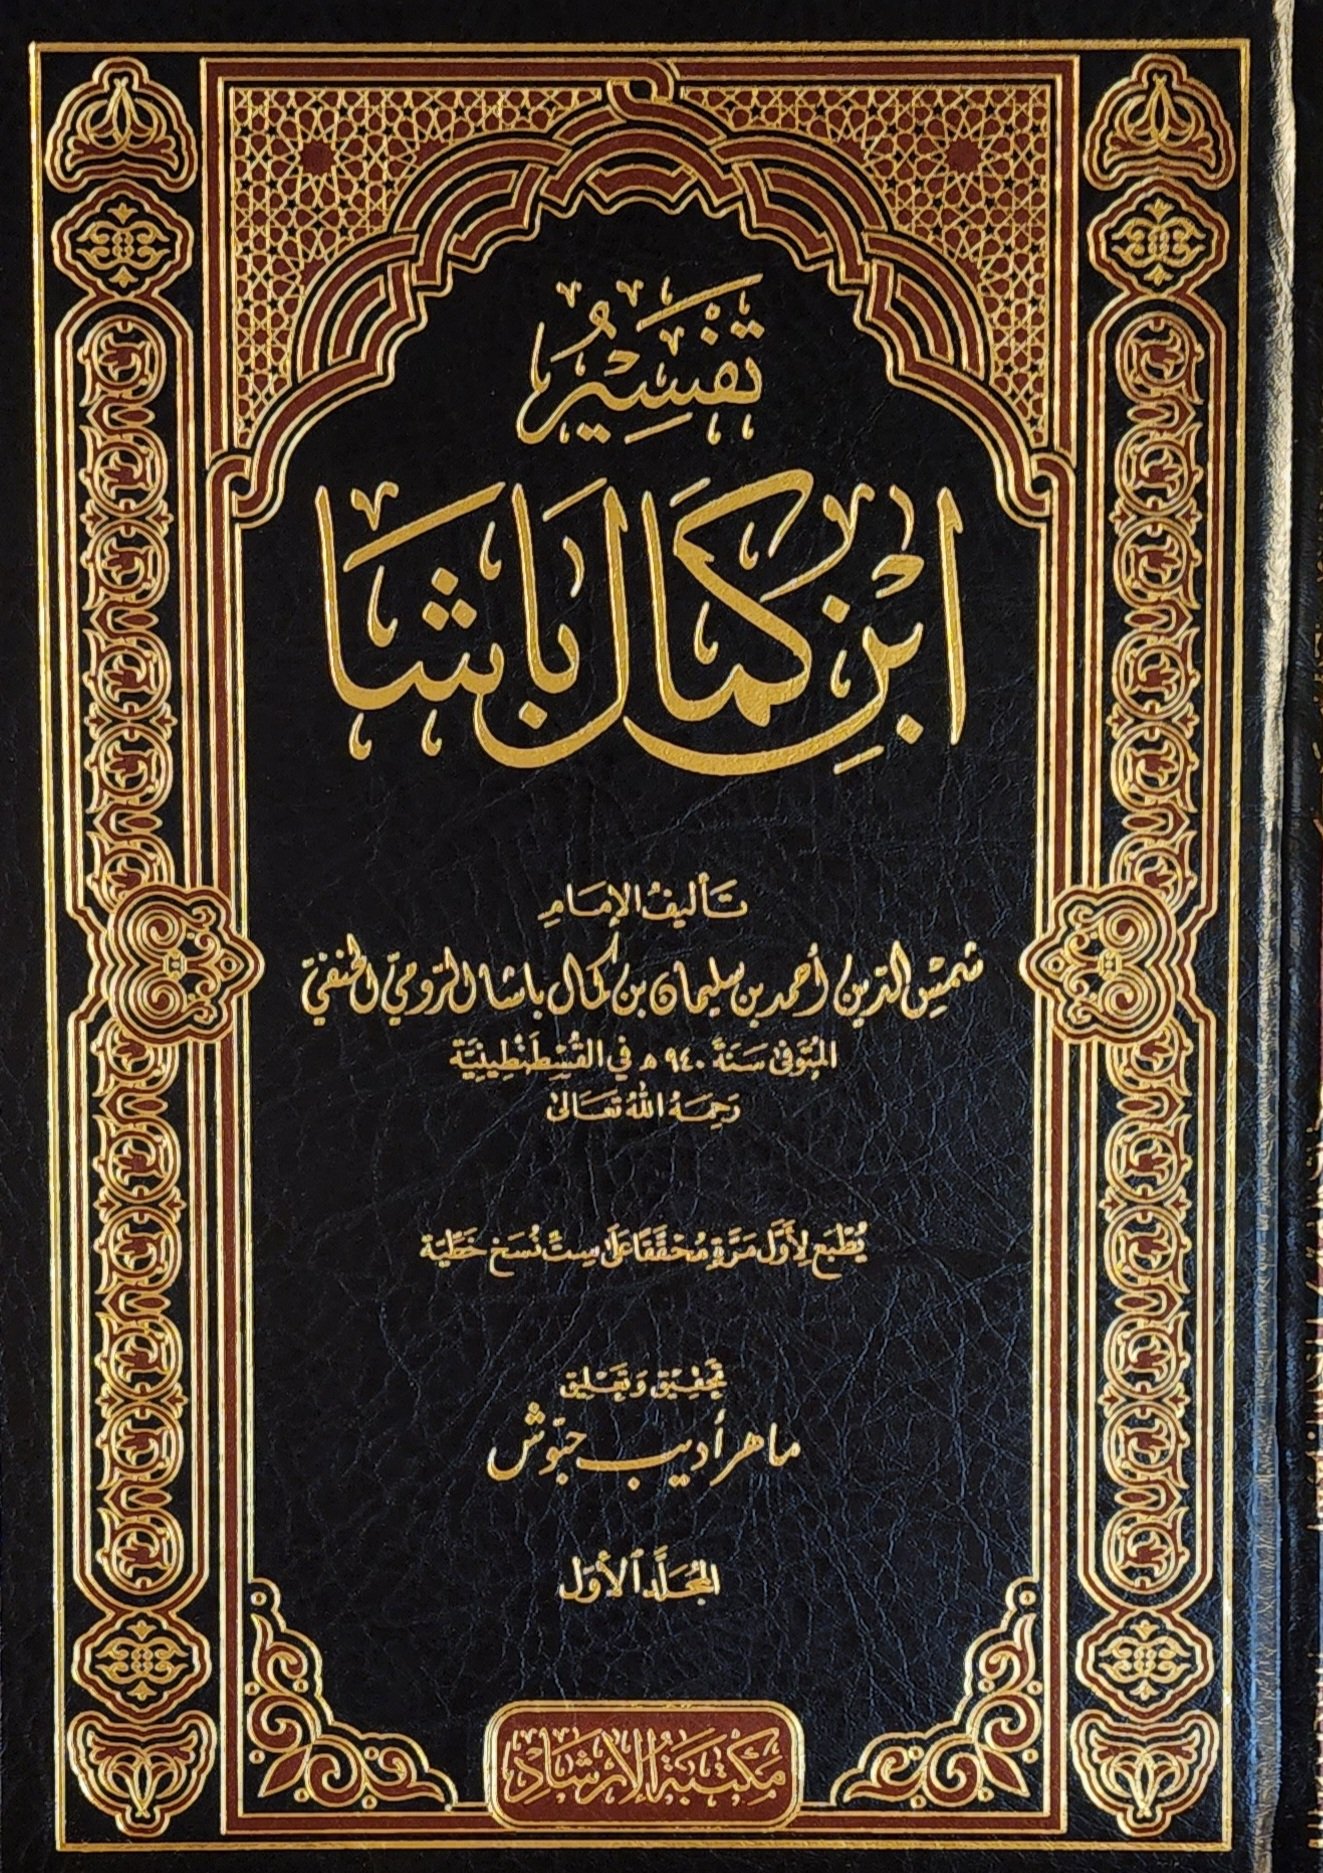 تَفْسِيرُ
ابْنِ كَمَال بَاشَا
تَأليفُ الإِمَامِ
شمسِ الدّين أحمد بن سليمان بن كمال باشا الرّوميّ الحنفيّ
المُتَوَفّى سَنَةَ ٩٤٠ ه‍ في القُسْطَنْطِينِيَّة
رَحِمَهُ اللهُ تَعَالىٰ
يُطْبَع لِأَوَّل مَرَّةٍ مُحَقَّقًا عَلَى سِتِّ نُسَخ خَطِّيَّة
تحقِيق وَتَعْليق
ماهر أديب حبّوش
المُجَلَّد الأَوَّل
مَكْتَبَةُ الإِرْشَاد